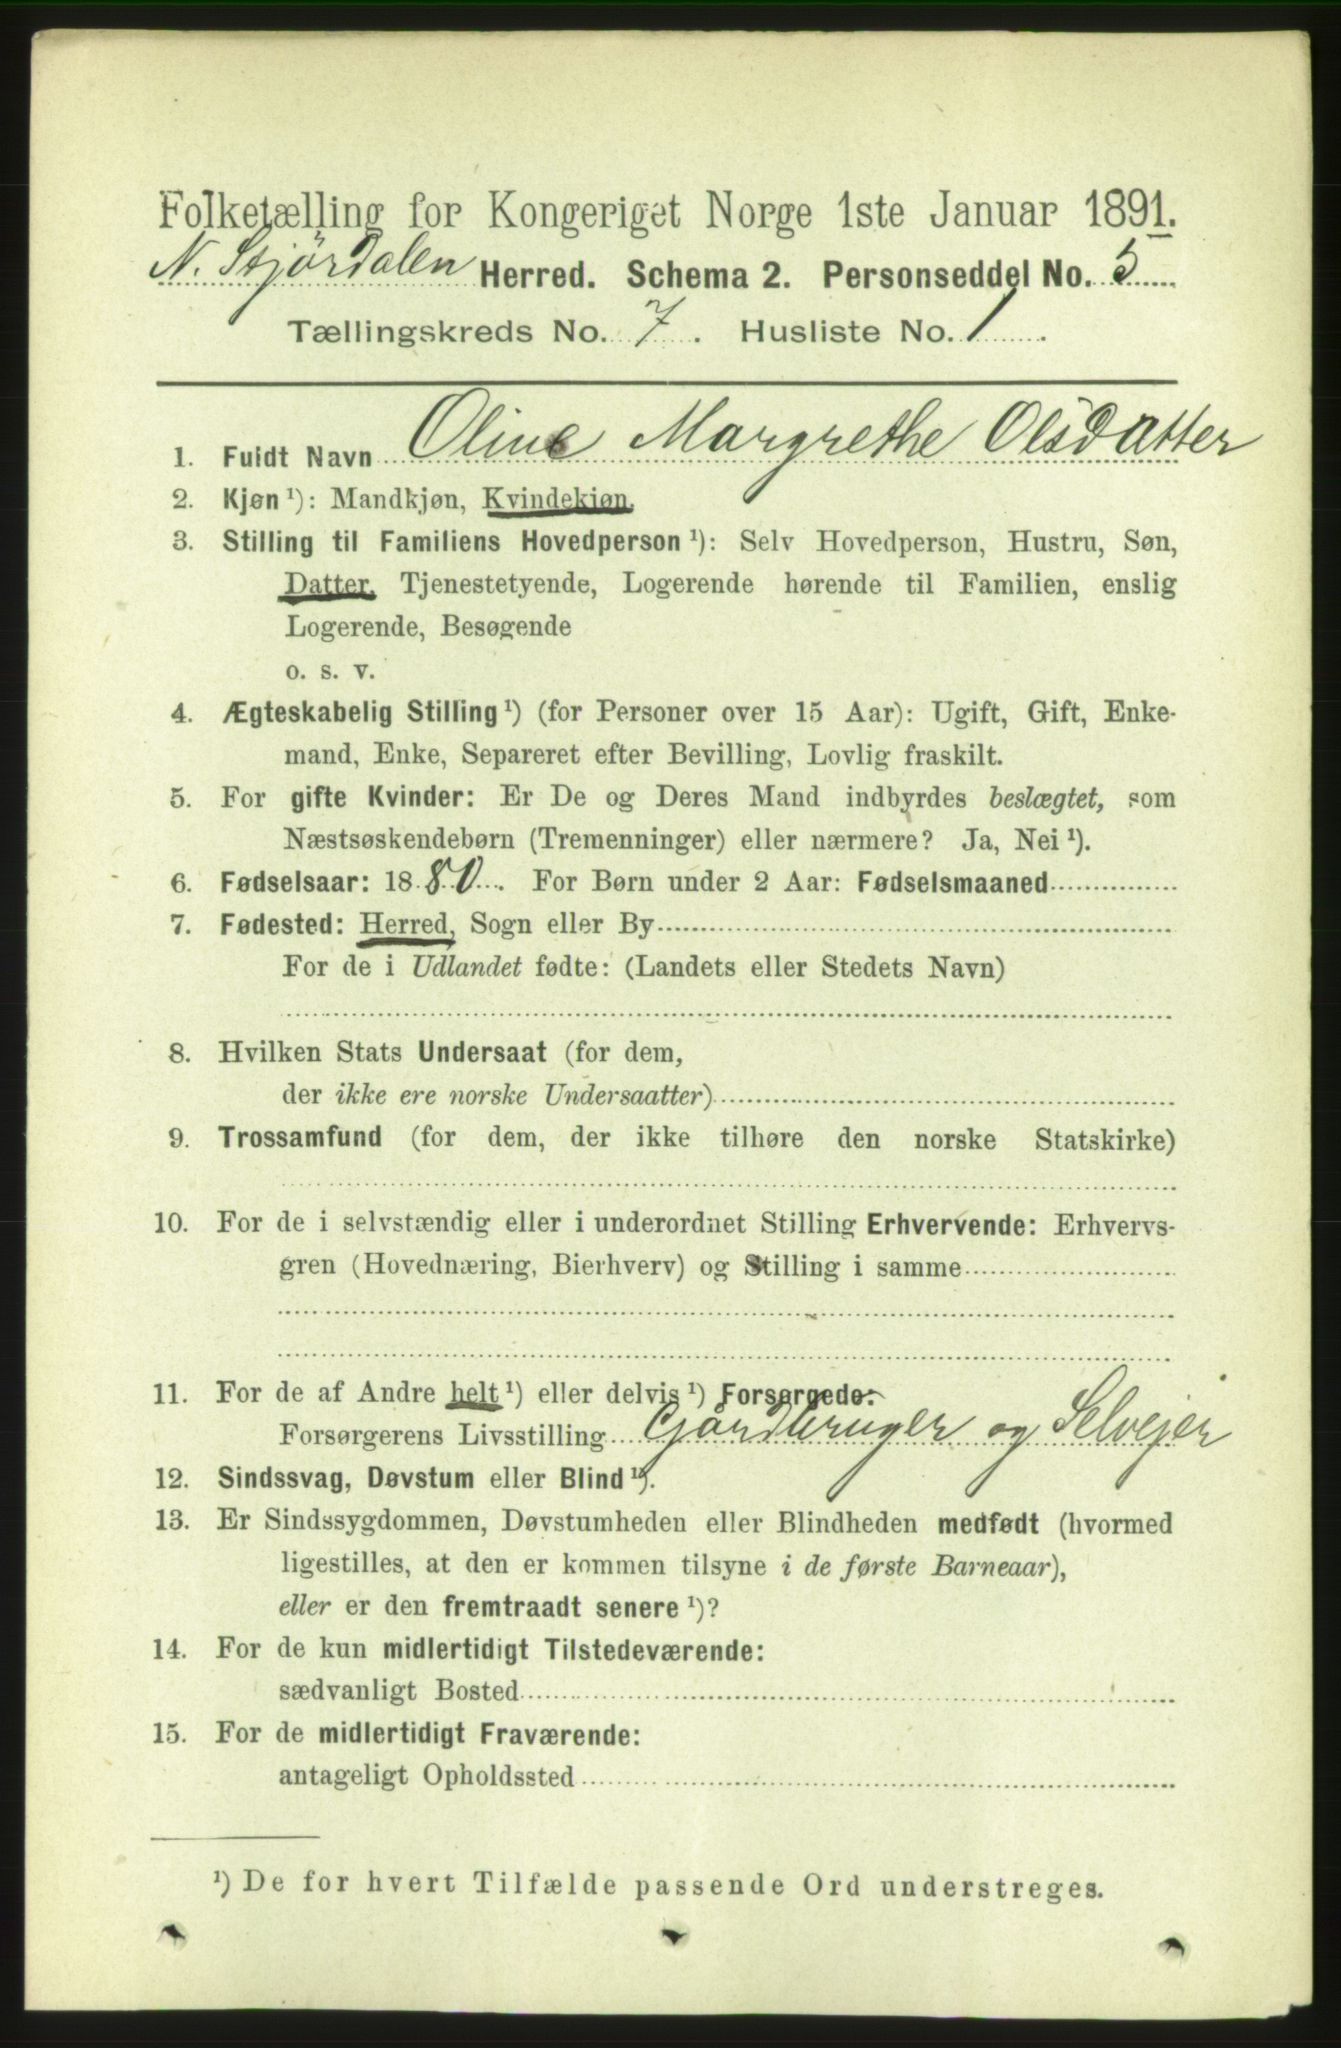 Folketælling for Kongeriget Norge 1ste Januar 1891.
N. Stjørdalen Herred. Schema 2. Personseddel No. 5
Tællingskreds No. 7. Husliste No. 1.
1. Fuldt Navn Oline Margrethe Olsdatter
2. Kjøn ¹): Mandkjøn, Kvindekjøn.
3. Stilling til Familiens Hovedperson ¹): Selv Hovedperson, Hustru, Søn,
Datter, Tjenestetyende, Logerende hørende til Familien, enslig
Logerende, Besøgende
o. s. v.
4. Ægteskabelig Stilling ¹) (for Personer over 15 Aar): Ugift, Gift, Enke-
mand, Enke, Separeret efter Bevilling, Lovlig fraskilt.
5. For gifte Kvinder: Er De og Deres Mand indbyrdes beslægtet, som
Næstsøskendebørn (Tremenninger) eller nærmere? Ja, Nei ¹).
6. Fødselsaar: 1880. For Børn under 2 Aar: Fødselsmaaned
7. Fødested: Herred, Sogn eller By
For de i Udlandet fødte: (Landets eller Stedets Navn)
8. Hvilken Stats Undersaat (for dem,
der ikke ere norske Undersaatter)
9. Trossamfund (for dem, der ikke tilhøre den norske Statskirke)
10. For de i selvstændig eller i underordnet Stilling Erhvervende: Erhvervs-
gren (Hovednæring, Bierhverv) og Stilling i samme
11. For de af Andre helt ¹) eller delvis ¹) Forsørgede:
Forsørgerens Livsstilling Gårdbruger og Selvejer
12. Sindssvag, Døvstum eller Blind ¹).
13. Er Sindssygdommen, Døvstumheden eller Blindheden medfødt (hvormed
ligestilles, at den er kommen tilsyne i de første Barneaar),
eller er den fremtraadt senere ¹)?
14. For de kun midlertidigt Tilstedeværende:
sædvanligt Bosted
15. For de midlertidigt Fraværende:
antageligt Opholdssted
¹) De for hvert Tilfælde passende Ord understreges.